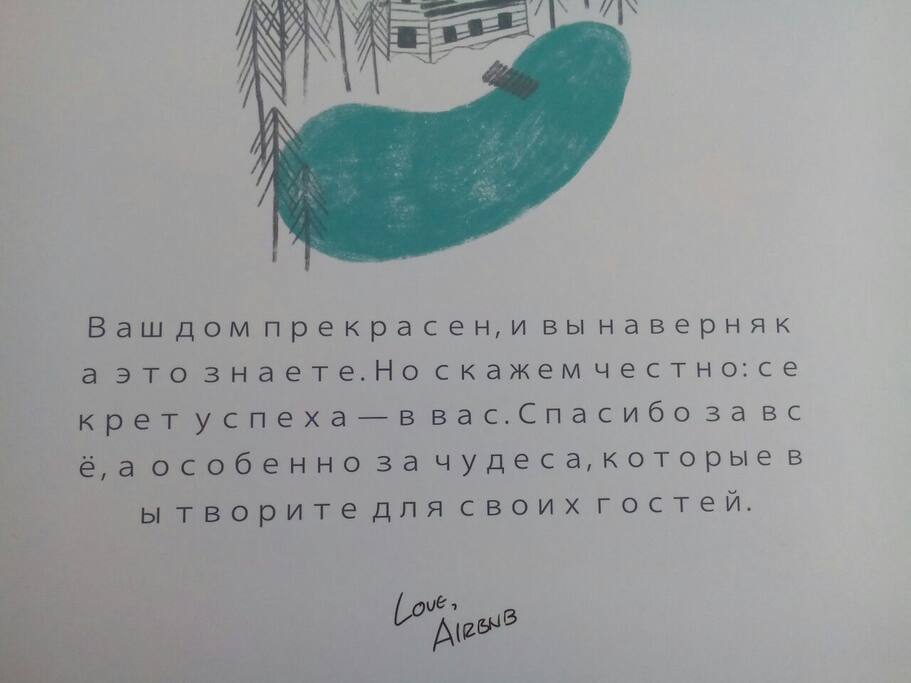 Ваш дом прекрасен, и вы наверняк
а это знаете. Но скажем честно: се
крет успеха — в вас. Спасибо за вс
ё, а особенно за чудеса, которые в
ы творите для своих гостей.
Love,
Airbnb